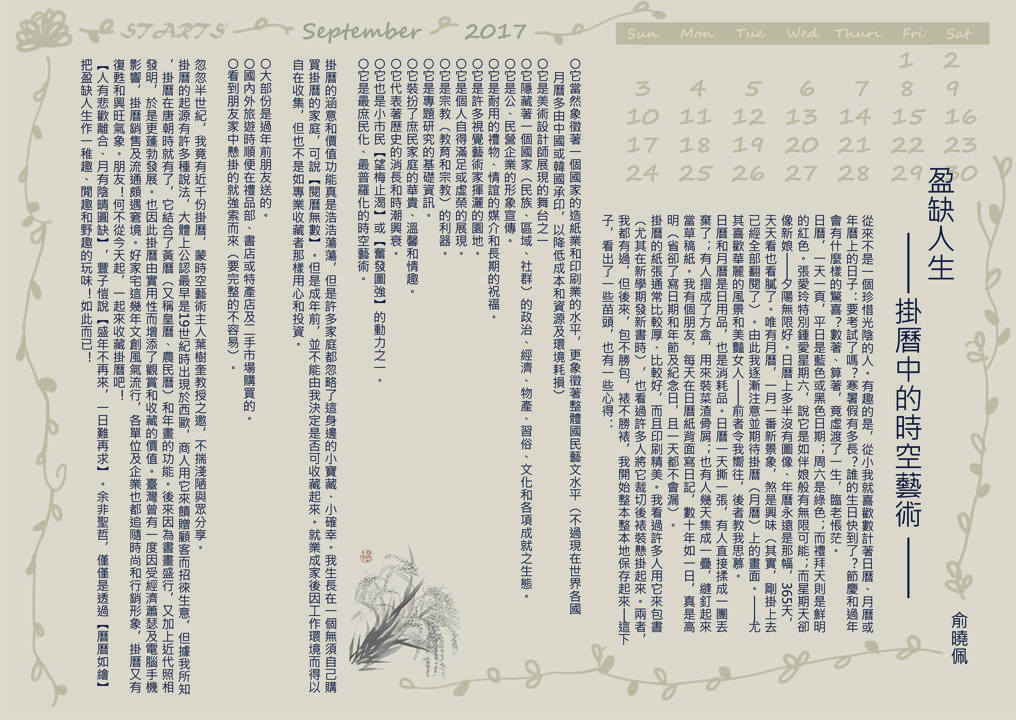 STARTS September 2017
Sun Mon Tue Wed Thurs Fri Sat
1 2
3 4 5 6 7 8 9
10 11 12 13 14 15 16
17 18 19 20 21 22 23
24 25 26 27 28 29 30
盈缺人生
——掛曆中的時空藝術——
俞曉佩
從來不是一個珍惜光陰的人。有趣的是，從小我就喜歡數計著日曆、月曆或
年曆上的日子：要考試了嗎？寒暑假有多長？誰的生日快到了？節慶和過年
會有什麼樣的驚喜？數著、算著，竟虛渡了一生，臨老悵茫。
日曆，一天一頁，平日是藍色或黑色日期；周六是綠色；而禮拜天則是鮮明
的紅色。張愛玲特別鍾愛星期六，說它是如伴娘般有無限可能；而星期天卻
像新娘——夕陽無限好。日曆上多半沒有圖像、年曆永遠是那幅，365天，
天天看也看膩了。唯有月曆，一月一番新景象，煞是興味（其實，剛掛上去
已經全部翻閱了）。由此我逐漸注意並期待掛曆（月曆）上的畫面。——尤
其喜歡華麗的風景和美豔女人——前者令我嚮往，後者教我思慕。
日曆和月曆是日用品，也是消耗品。日曆一天撕一張，有人直接揉成一團丟
棄了；有人摺成了方盒，用來裝菜渣骨屑；也有人幾天集成一疊，縫釘起來
當草稿紙。我有個朋友，每天在日曆紙背面寫日記，數十年如一日，真是高
明（省卻了寫日期和年節及紀念日，且一天都不會漏）。
掛曆的紙張通常比較厚、比較好，而且印刷精美。我看過許多人用它來包書
（尤其在新學期發新書時），也看過許多人將它裁切後裱裝懸掛起來。兩者，
我都有過，但後來，包不勝包，裱不勝裱，我開始整本整本地保存起來—這下
子，看出了一些苗頭，也有一些心得：
○它當然象徵著一個國家的造紙業和印刷業的水平，更象徵著整體國民藝文水平（不過現在世界各國
月曆多由中國或韓國承印，以降低成本和資源及環境耗損）
○它是美術設計師展現的舞台之一
○它隱藏著一個國家（民族、區域、社群）的政治、經濟、物產、習俗、文化和各項成就之生態。
○它是公、民營企業的形象宣傳。
○它是耐用的禮物、情誼的媒介和長期的祝福。
○它是許多視覺藝術家揮灑的園地。
○它是個人自得滿足或虛榮的展現。
○它是宗教（教育和宗教）的利器。
○它是專題研究的基礎資訊。
○它裝扮了庶民家庭的華貴、溫馨和情趣。
○它代表著歷史的消長和時潮興衰。
○它也是小市民【望梅止渴】或【奮發圖強】的動力之一。
○它是最庶民化、最普羅化的時空藝術。
掛曆的涵意和價值功能真是浩浩蕩蕩，但是許多家庭都忽略了這身邊的小寶藏、小確幸。我生長在一個無須自己購
買掛曆的家庭，可說【閱曆無數】。但是成年前，並不能由我決定是否可收藏起來。就業成家後因工作環境而得以
自在收集，但也不是如專業收藏者那樣用心和投資。
○大部份是過年前朋友送的。
○國內外旅遊時順便在禮品部、書店或特產店及二手市場購買的。
○看到朋友家中懸掛的就強索而來（要完整的不容易）。
忽忽半世紀，我竟有近千份掛曆，蒙時空藝術主人葉樹奎教授之邀，不揣淺陋與眾分享。
掛曆的起源有許多種說法，大體上公認最早是19世紀時出現於西歐，商人用它來饋贈顧客而招徠生意，但據我所知
，掛曆在唐朝時就有了，它結合了黃曆（又稱皇曆、農民曆）和年畫的功能。後來因為書畫盛行，又加上近代照相
發明，於是更蓬勃發展。也因此掛曆由實用性而增添了觀賞和收藏的價值。臺灣曾有一度因受經濟蕭瑟及電腦手機
影響，掛曆銷售及流通頗遇窘境。好家宅這幾年文創風氣流行，各單位及企業也都追隨時尚和行銷形象，掛曆又有
復甦和興旺氣象。朋友！何不從今天起，一起來收藏掛曆吧！
【人有悲歡離合、月有陰晴圓缺】，豐子愷說【盛年不再來，一日難再求】。余非聖哲，僅僅是透過【曆曆如繪】
把盈缺人生作一稚趣、閒趣和野趣的玩味！如此而已！